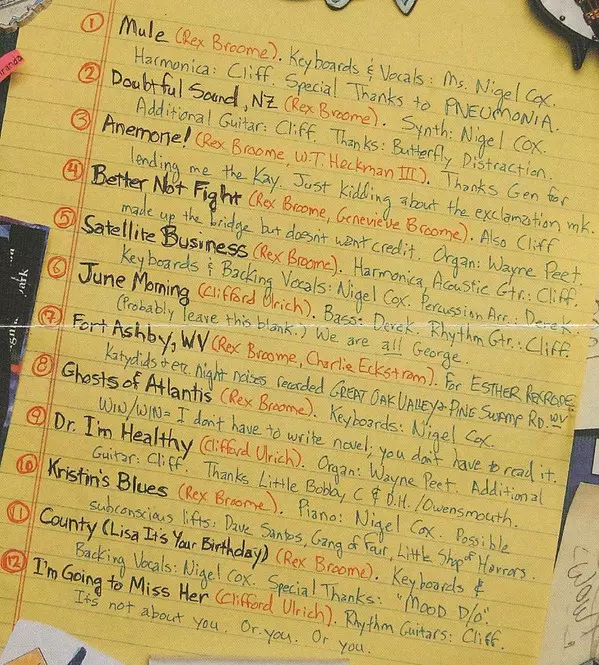 ① Mule (Rex Broome). Keyboards & Vocals: Ms. Nigel Cox.
Harmonica: Cliff Special Thanks to PNEUMONIA.
② Doubtful Sound, NZ (Rex Broome). Synth: Nigel Cox.
Additional Guitar: Cliff. Thanks: Butterfly Distraction.
③ Anemone! (Rex Broome, W.T. Heckman III). Thanks Gen for
lending me the Kay. Just kidding about the exclamation mk.
④ Better Not Fight (Rex Broome, Genevieve Broome). Also Cliff
made up the bridge but doesn't want credit. Organ: Wayne Peet.
⑤ Satellite Business (Rex Broome). Harmonica, Acoustic Gtr.: Cliff.
Keyboards & Backing Vocals: Nigel Cox. Percussion Arr.: Derek.
⑥ June Morning (Clifford Ulrich). Bass: Derek. Rhythm Gtr.: Cliff.
(Probably leave this blank.) We are all George.
⑦ Fort Ashby, WV (Rex Broome, Charlie Eckstrom). For ESTHER REXRODE.
Katydids & etc. night noises recorded GREAT OAK VALLEY & PINE SWAMP RD. WV
⑧ Ghosts of Atlantis (Rex Broome). Keyboards: Nigel Cox.
WIN/WIN= I don't have to write novel; you don't have to read it.
⑨ Dr. I'm Healthy (Clifford Ulrich). Organ: Wayne Peet. Additional
Guitar: Cliff. Thanks Little Bobby C & D.H. /Owensmouth.
⑩ Kristin's Blues (Rex Broome). Piano: Nigel Cox. Possible
subconscious lifts: Dave Santos, Gang of Four, Little Shop of Horrors.
⑪ County (Lisa It's Your Birthday) (Rex Broome). Keyboards &
Backing Vocals: Nigel Cox. Special Thanks: "MOOD D/O".
⑫ I'm Going to Miss Her (Clifford Ulrich). Rhythm Guitars: Cliff.
It's not about you. Or you. Or you.